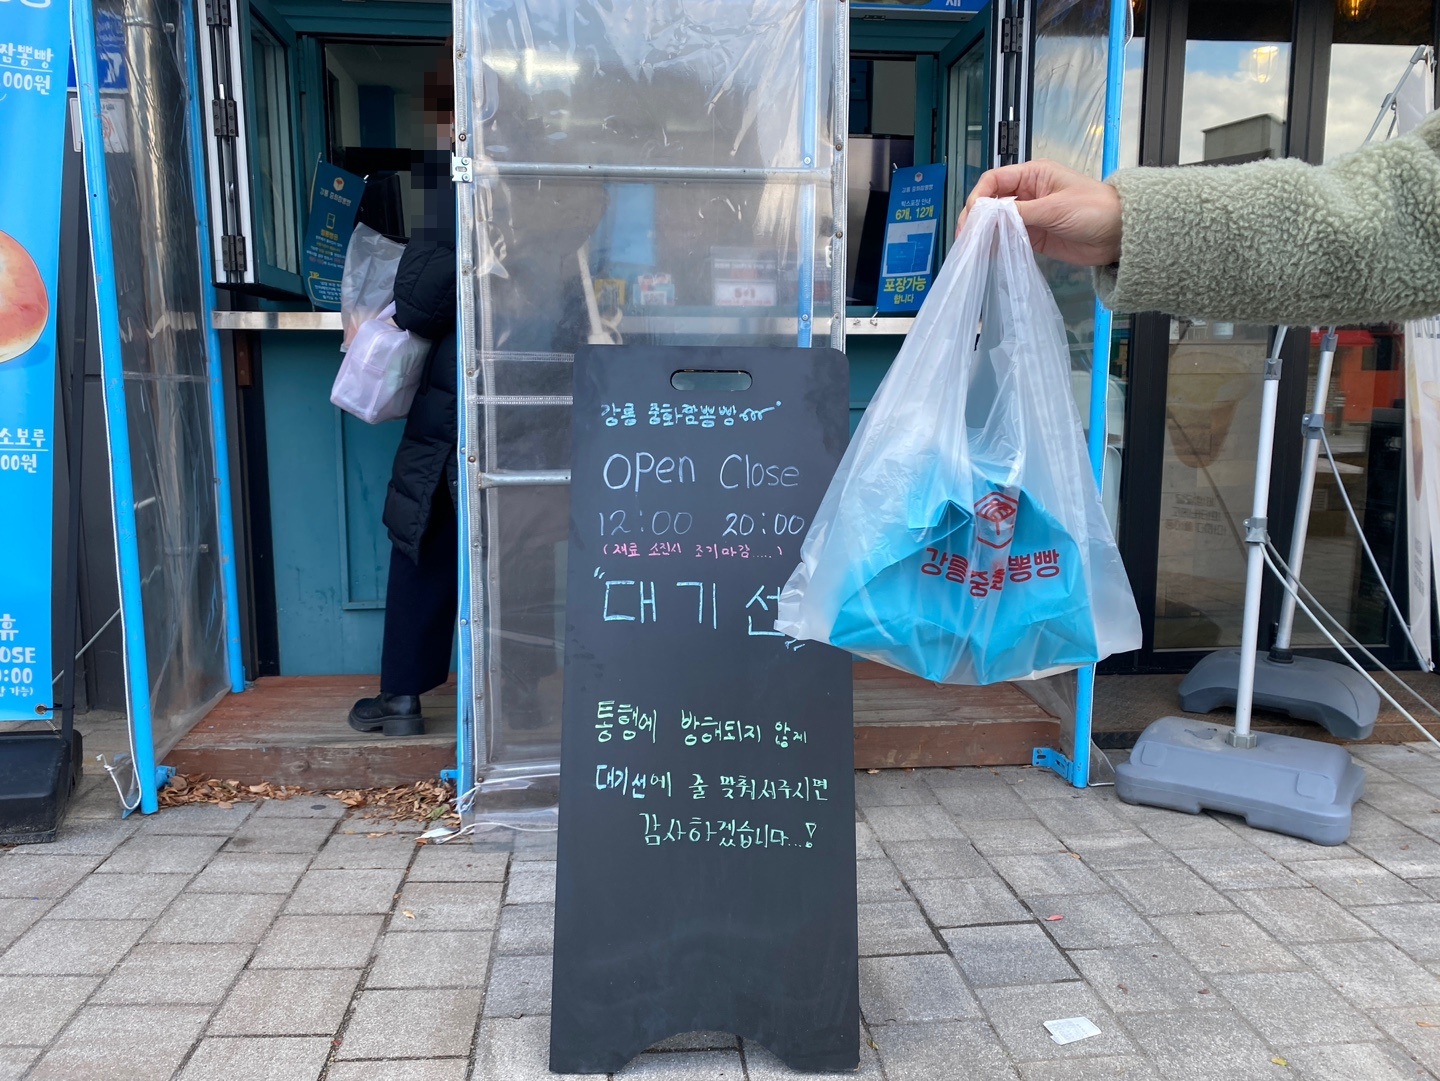 짬뽕빵
000원
소보루
00원
휴
OSE
0:00
박스포장 안내
6개, 12개
포장가능
합니다
강릉 중화짬뽕빵
OPen Close
12:00 20:00
(재료 소진시 조기마감.....)
"대기선
통행에 방해되지 않게
대기선에 줄 맞춰서주시면
감사하겠습니다...!
강릉중화뽕빵